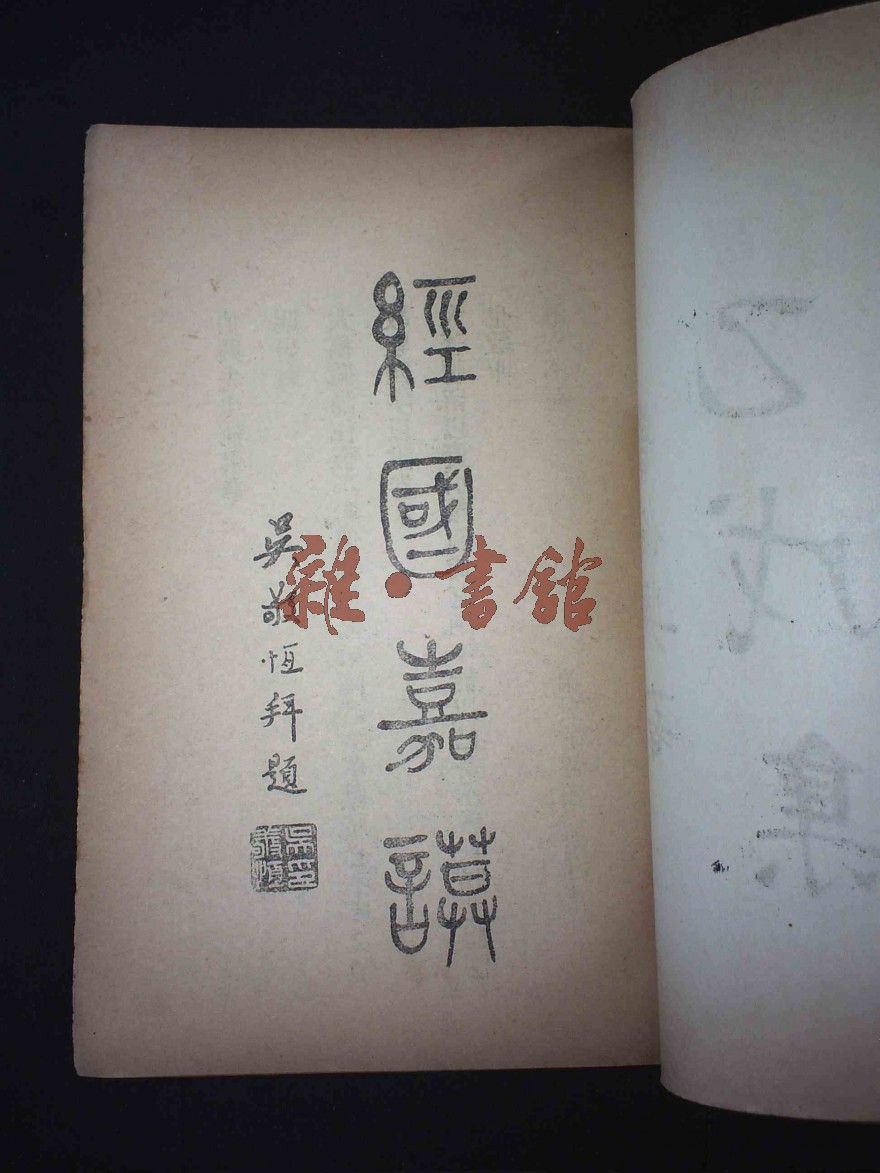 經國嘉謨
吳敬恆拜題
吳敬恆印
雜·書館